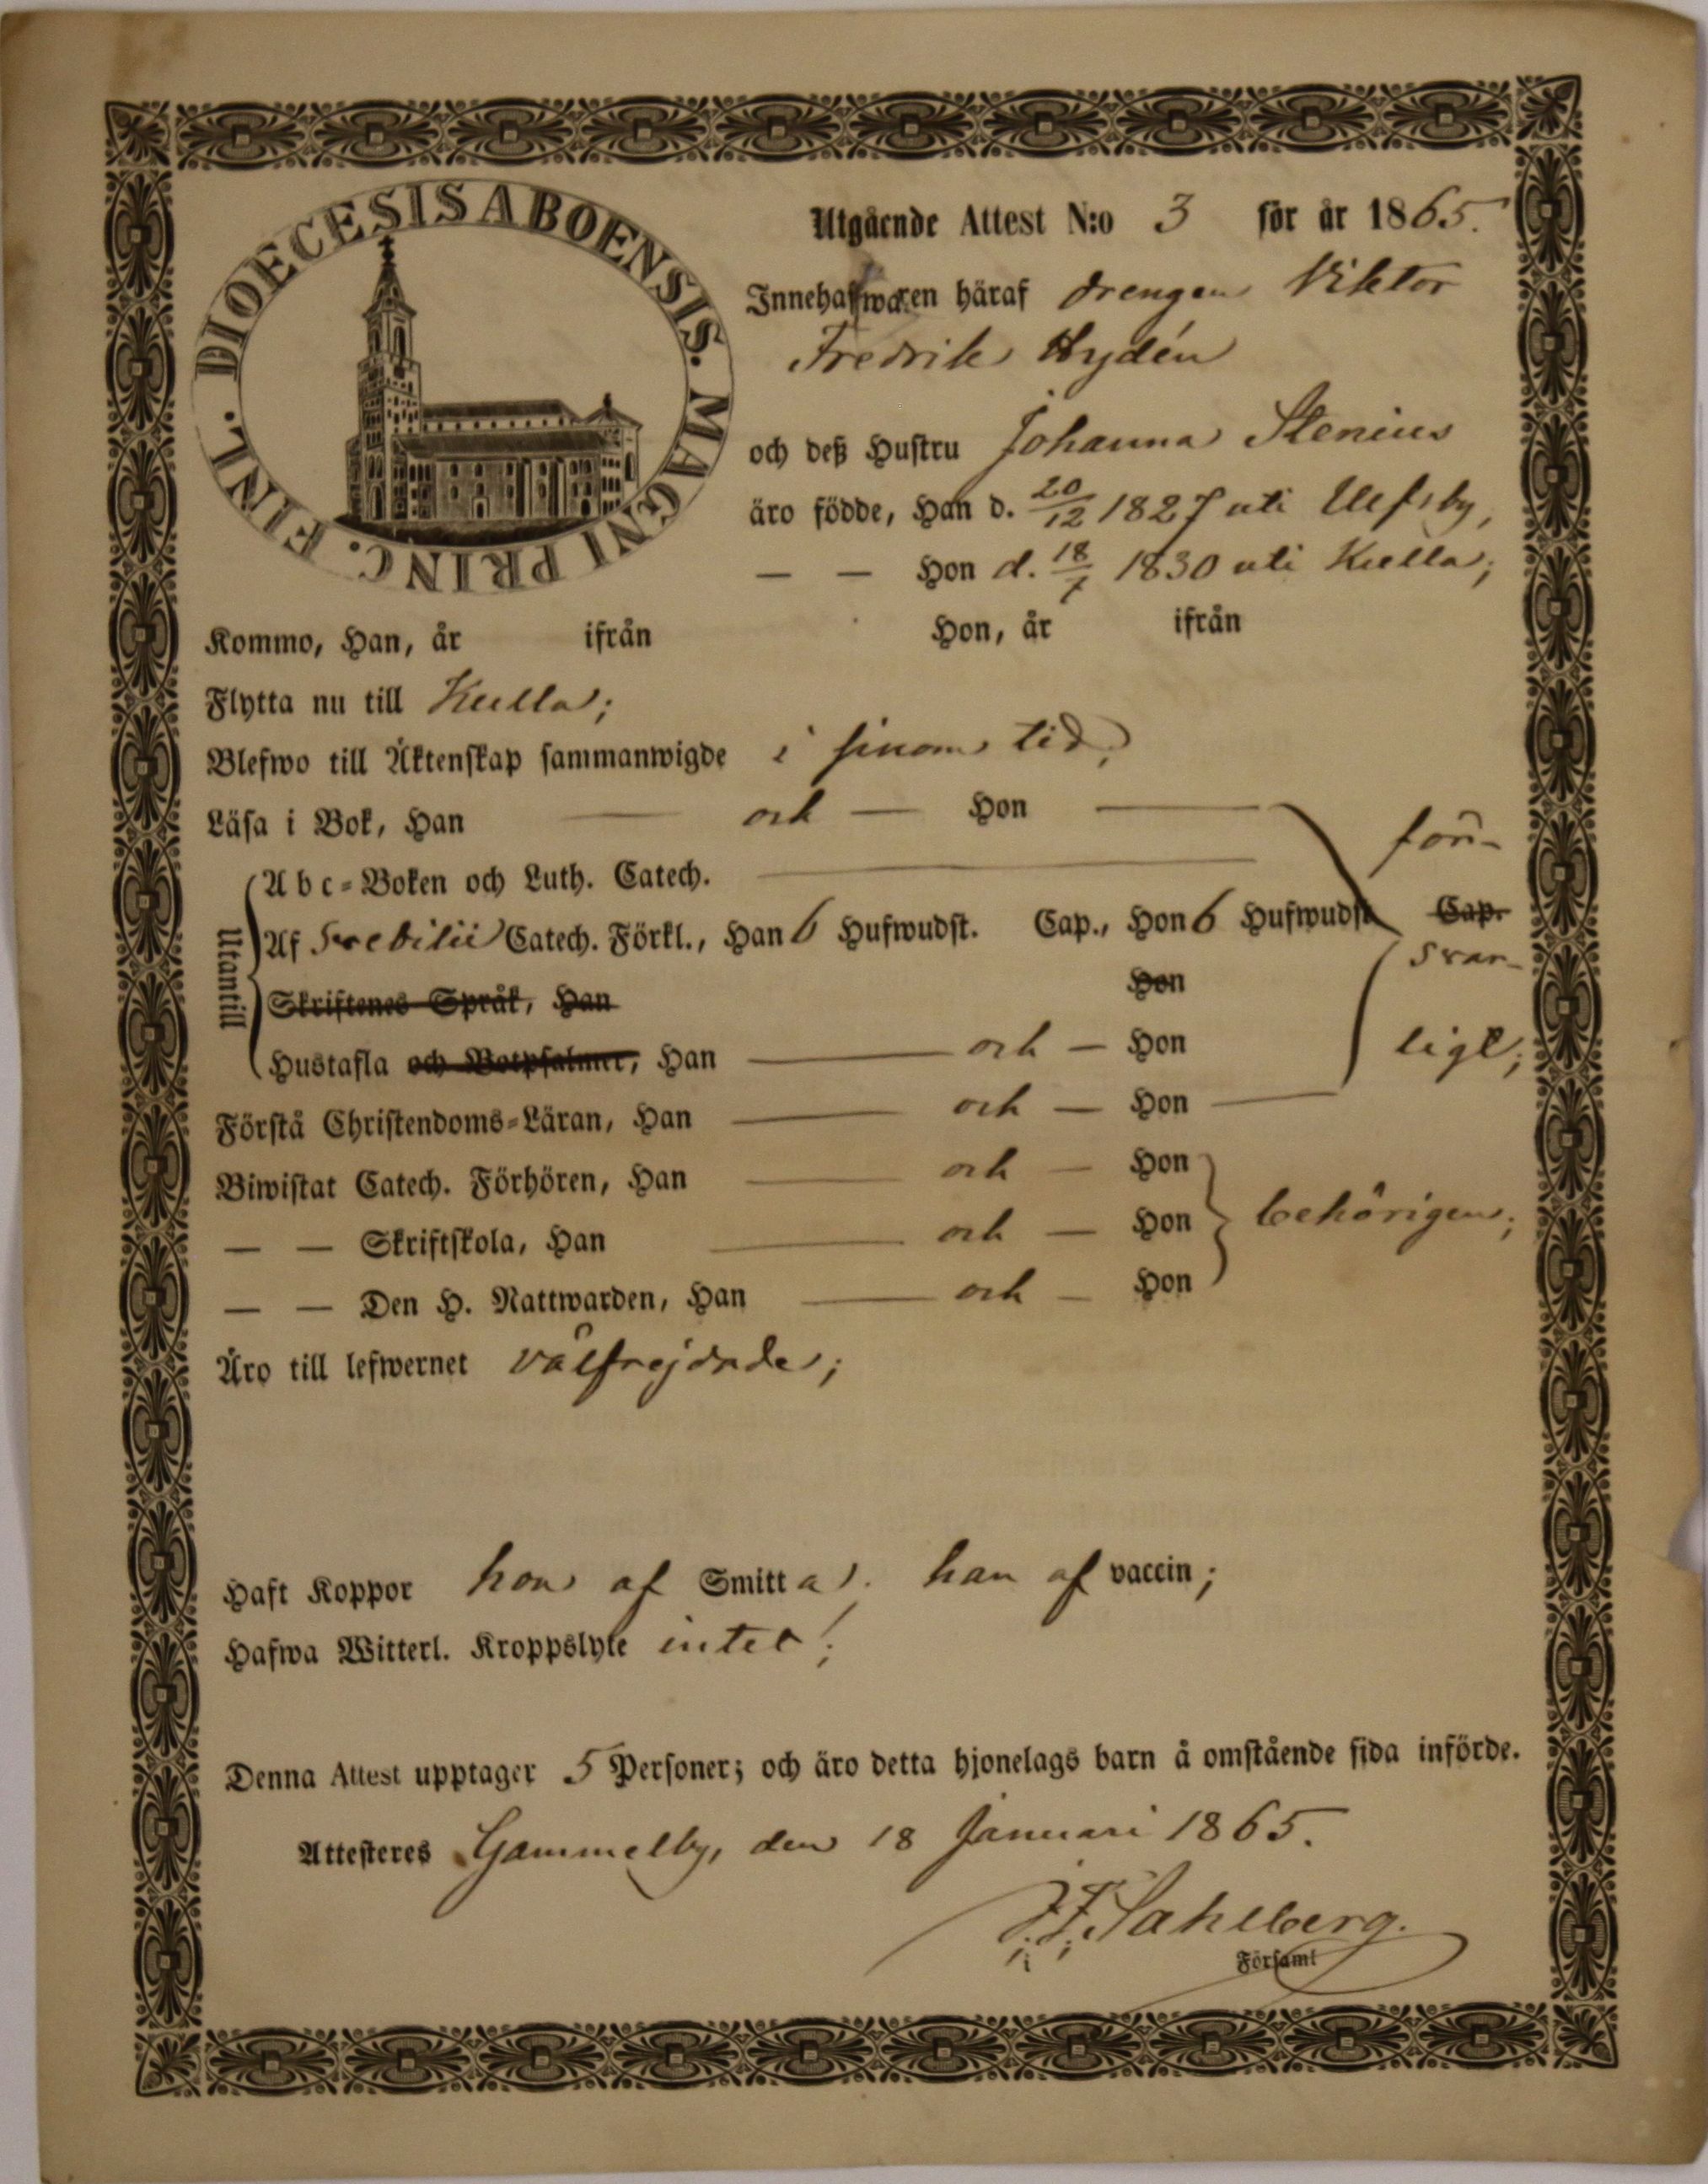 DIOECESIS ABOENSIS. MAGNI PRINC. FINL.
Utgående Attest N:o 3 för år 1865.
Innehafwaren häraf drengen Viktor
Fredrik Hydén
och deß Hustru Johanna Stenius
äro födde, Han d. 20/12 1827 uti Ulfsby,
— — Hon d. 18/7 1830 uti Kulla;
Kommo, Han, år ifrån Hon, år ifrån
Flytta nu till Kulla;
Blefwo till Äktenskap sammanwigde i sinom tid;
Läsa i Bok, Han — och — Hon — för-
Utantill
Abc-Boken och Luth. Catech. —
Af Svebilii Catech. Förkl., Han 6 Hufwudst. Cap., Hon 6 Hufwudst. Cap.
svar-
Skriftenes Språk, Han Hon
Hustafla och Botpsalmer, Han — och — Hon ligt;
Förstå Christendoms-Läran, Han — och — Hon —
Biwistat Catech. Förhören, Han — och — Hon
— — Skriftskola, Han — och — Hon behörigen;
— — Den H. Nattwarden, Han — och — Hon
Äro till lefwernet välfrejdade;
Haft Koppor hon af Smitta; han af vaccin;
Hafwa Witterl. Kroppslyte intet;
Denna Attest upptager 5 Personer; och äro detta hjonelags barn å omstående sida införde.
Attesteres Gammelby, den 18 Januari 1865.
Sahlberg.
i Församl